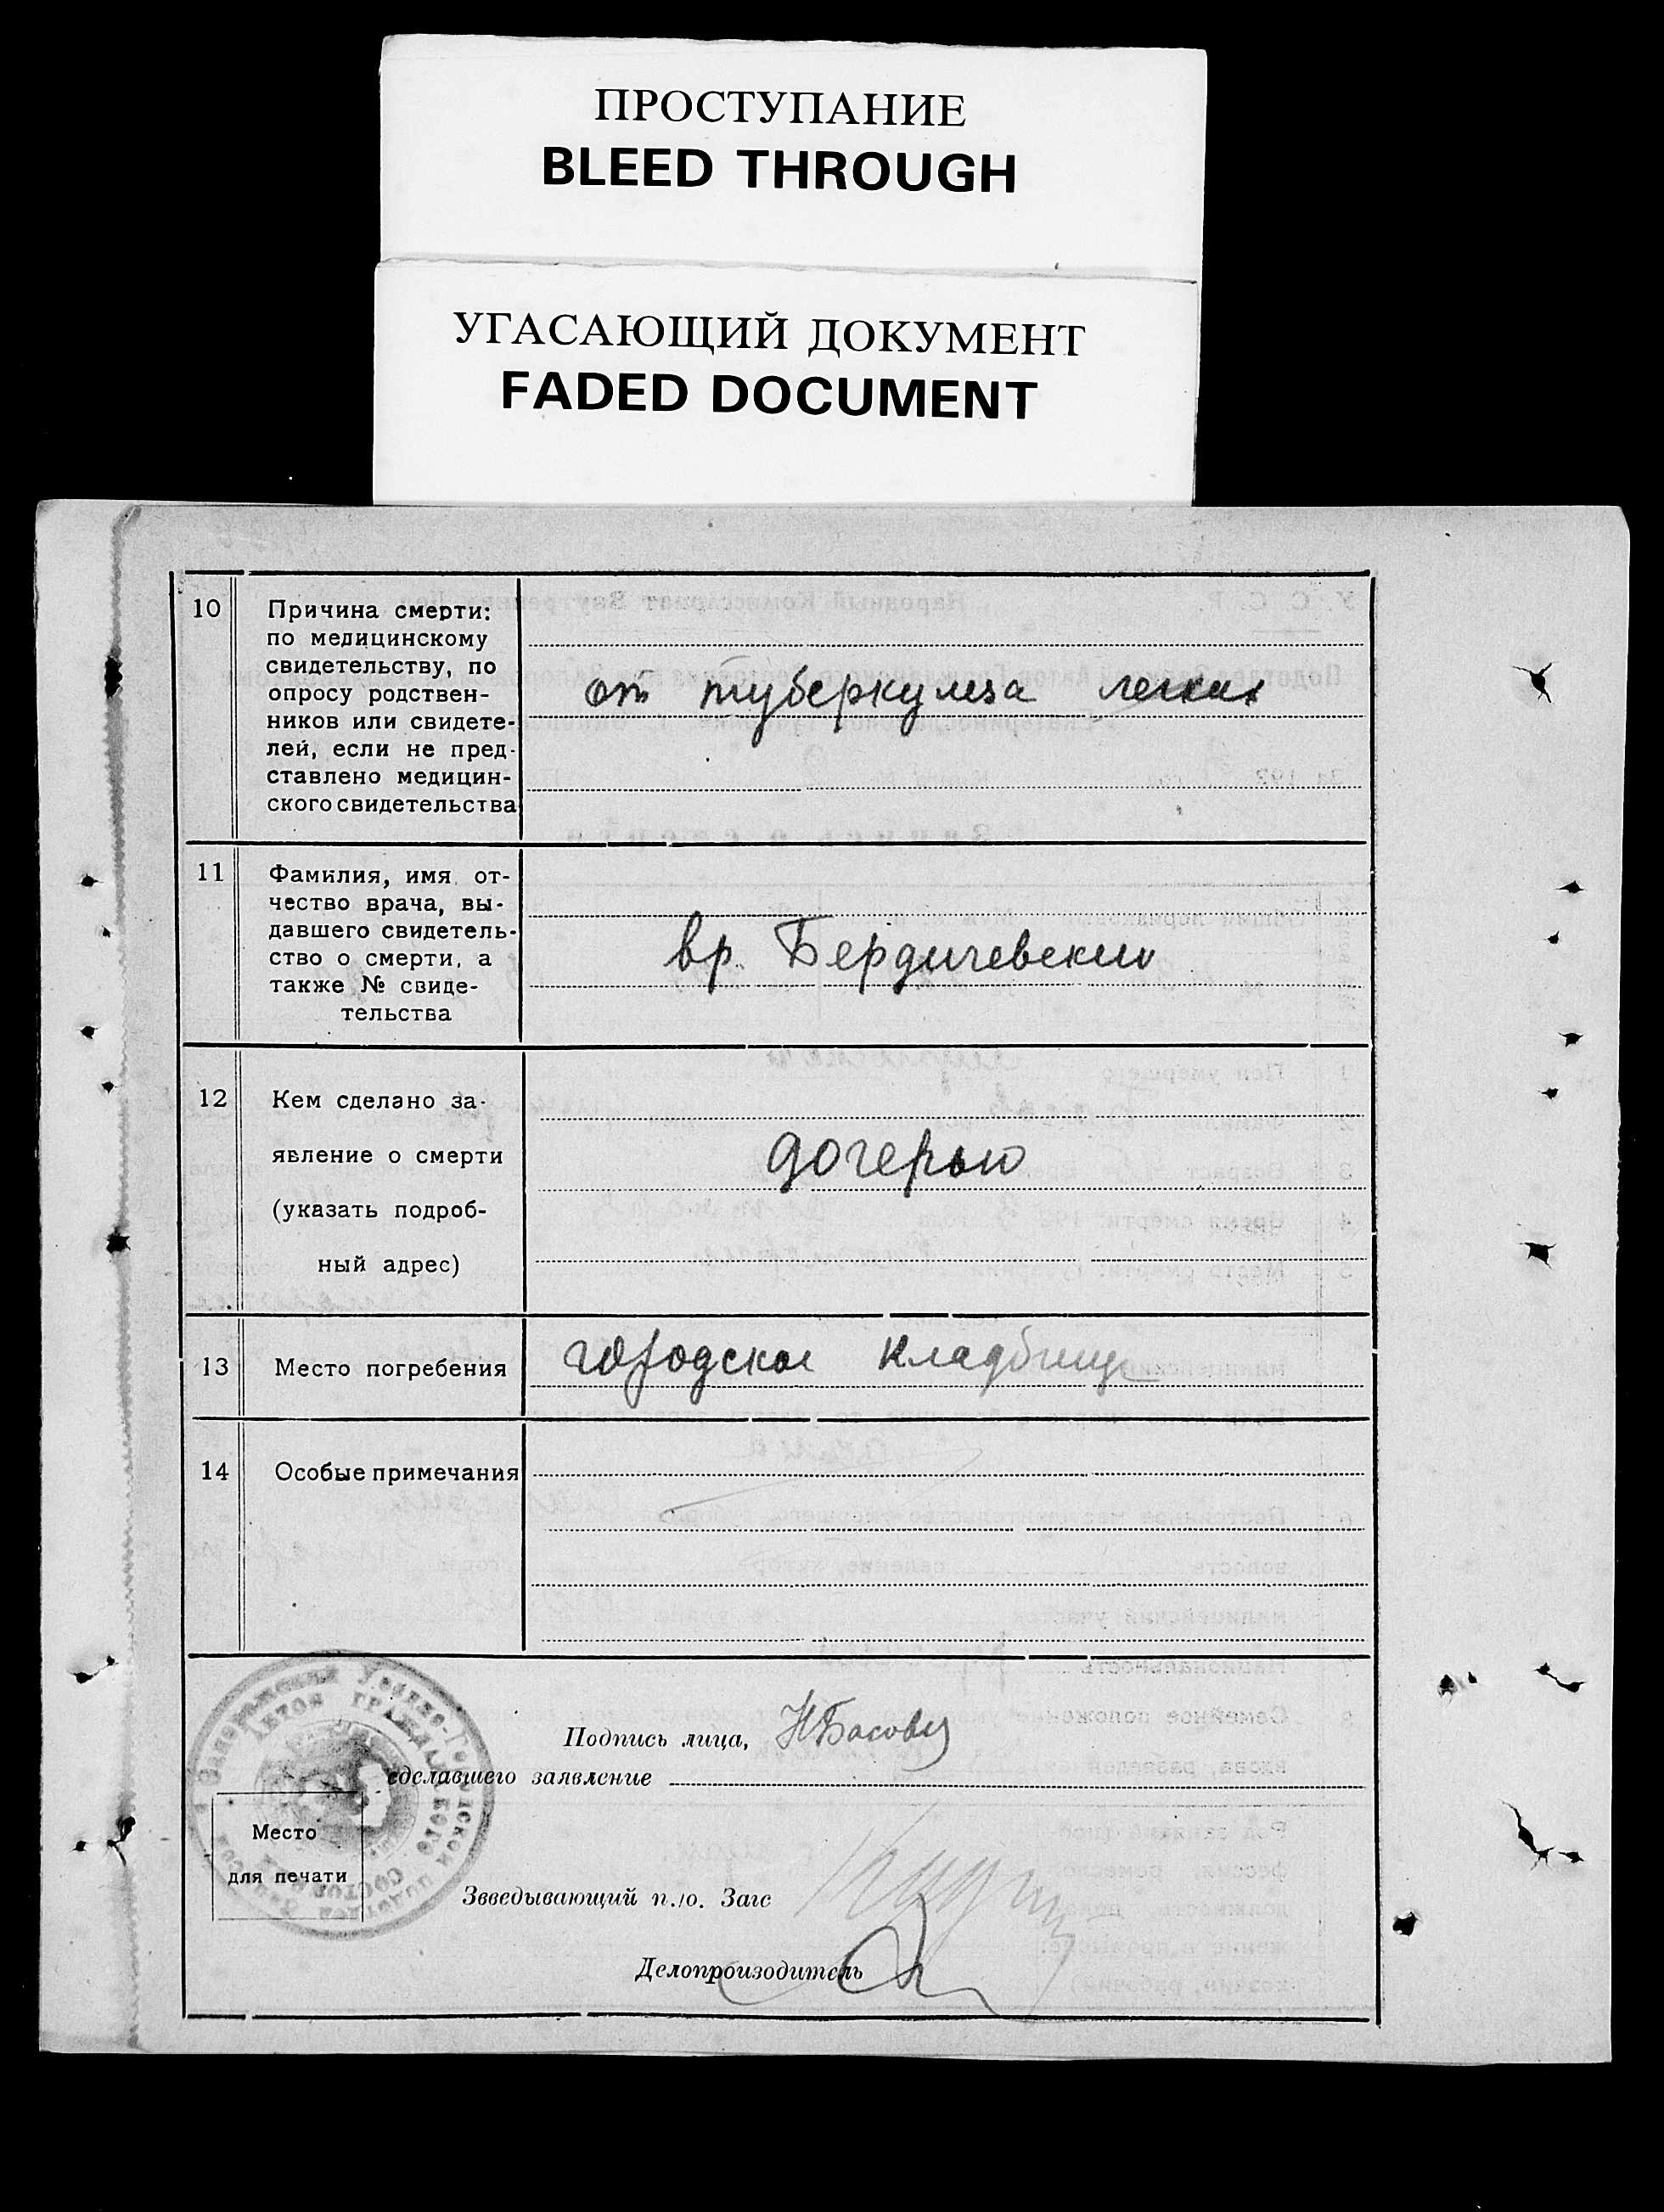 ПРОСТУПАНИЕ
BLEED THROUGH
УГАСАЮЩИЙ ДОКУМЕНТ
FADED DOCUMENT
10
Причина смерти:
по медицинскому
свидетельству, по
опросу родствен-
ников или свидете-
лей, если не пред-
ставлено медицин-
ского свидетельства
от туберкулеза легких
11
Фамилия, имя, от-
чество врача, вы-
давшего свидетель-
ство о смерти, а
также № свиде-
тельства
вр. Бердичевский
12
Кем сделано за-
явление о смерти
(указать подроб-
ный адрес)
дочерью
13
Место погребения
городское кладбище
14
Особые примечания
Подпись лица,
сделавшего заявление
Место
для печати
Зведывающий п./о. Загс
Делопроизодитель
АКТОВ ГРАЖДАНСКОГО СОСТОЯНИЯ